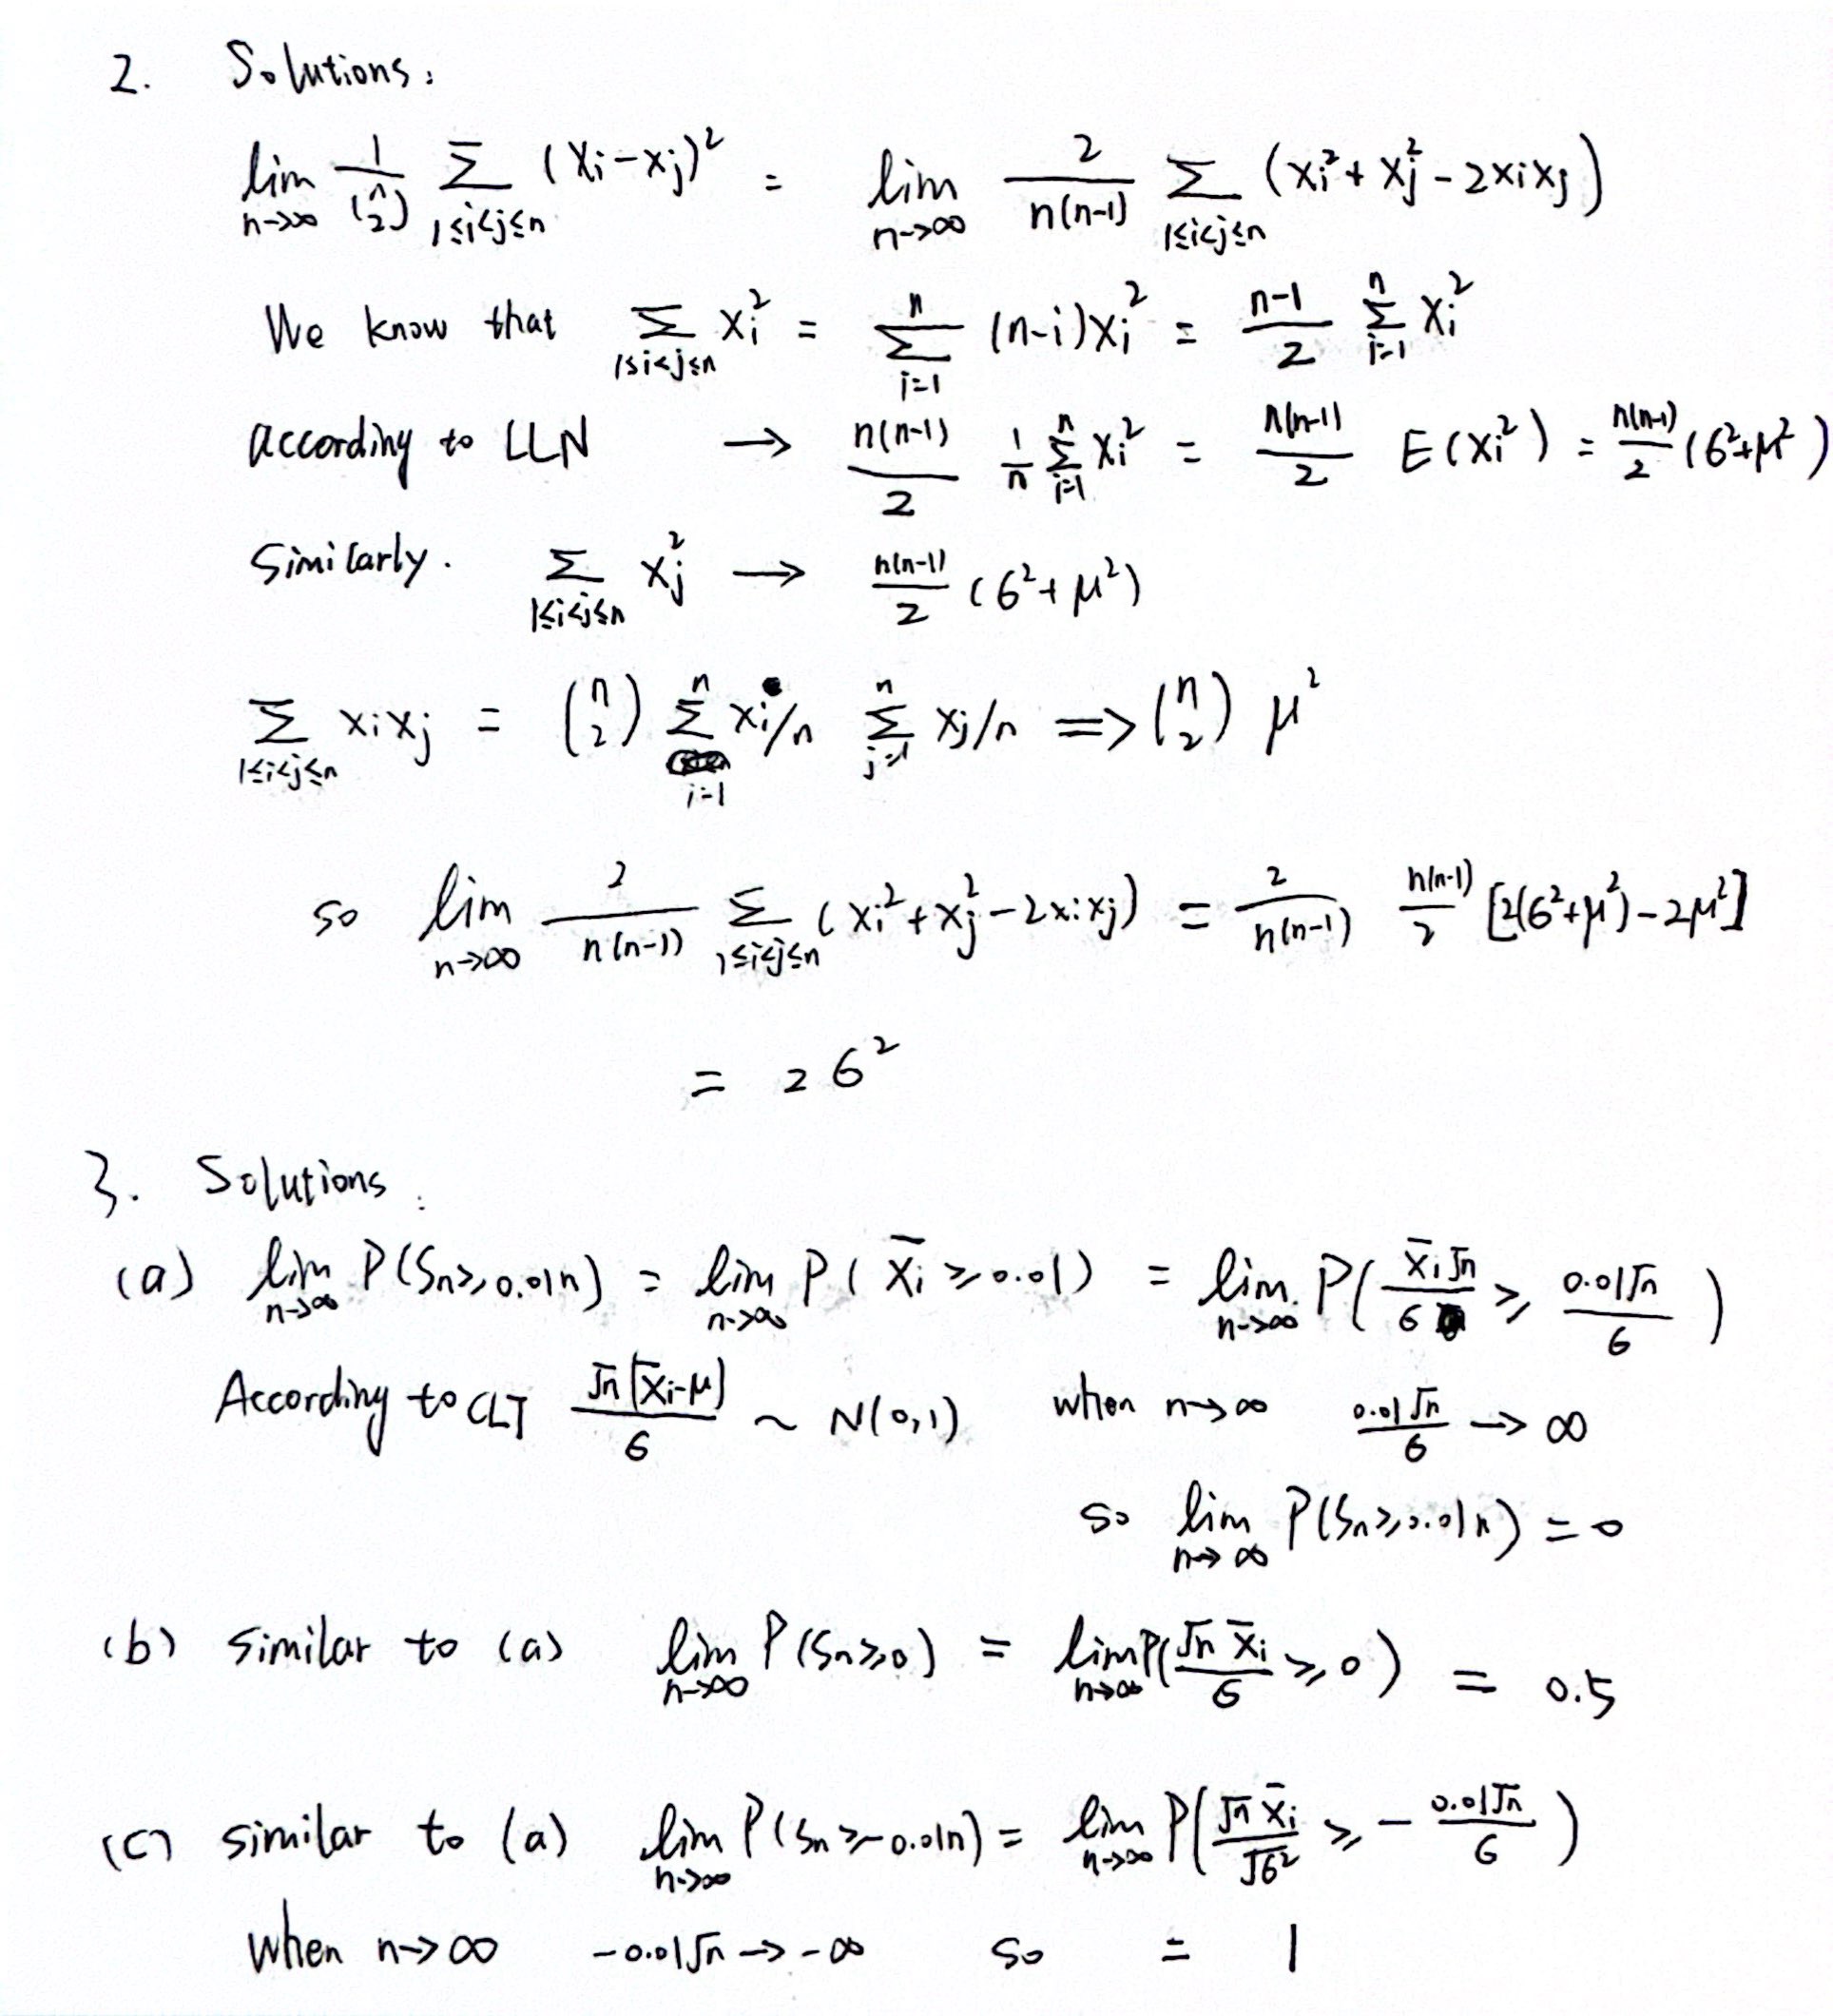 2. Solutions:
lim n→∞ 1/(n 2) Σ 1≤i<j≤n (Xi-Xj)² = lim n→∞ 2/n(n-1) Σ 1≤i<j≤n (Xi²+Xj²-2XiXj)
We know that Σ 1≤i<j≤n Xi² = Σ i=1 n (n-i)Xi² = n-1/2 Σ i=1 n Xi²
according to LLN → n(n-1)/2 1/n Σ i=1 n Xi² = n(n-1)/2 E(Xi²) = n(n-1)/2 (σ²+μ²)
Similarly. Σ 1≤i<j≤n Xj² → n(n-1)/2 (σ²+μ²)
Σ 1≤i<j≤n XiXj = (n 2) Σ i=1 n Xi/n Σ j=1 n Xj/n => (n 2) μ²
so lim n→∞ 2/n(n-1) Σ 1≤i<j≤n (Xi²+Xj²-2XiXj) = 2/n(n-1) n(n-1)/2 [2(σ²+μ²)-2μ²]
= 2σ²
3. Solutions:
(a) lim n→∞ P(Sn≥0.01n) = lim n→∞ P(X̄i≥0.01) = lim n→∞ P(X̄i√n/σ ≥ 0.01√n/σ)
According to CLT √n(X̄i-μ)/σ ~ N(0,1) when n→∞ 0.01√n/σ → ∞
so lim n→∞ P(Sn≥0.01n) = 0
(b) similar to (a) lim n→∞ P(Sn≥0) = lim n→∞ P(√n X̄i/σ ≥ 0) = 0.5
(c) similar to (a) lim n→∞ P(Sn≥-0.01n) = lim n→∞ P(√n X̄i/√σ² ≥ -0.01√n/σ)
When n→∞ -0.01√n → -∞ so = 1